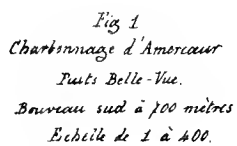 Fig 1
Charbonnage d'Amercœur
Puits Belle-Vue.
Bouveau sud à 700 mètres
Echelle de 1 à 400.